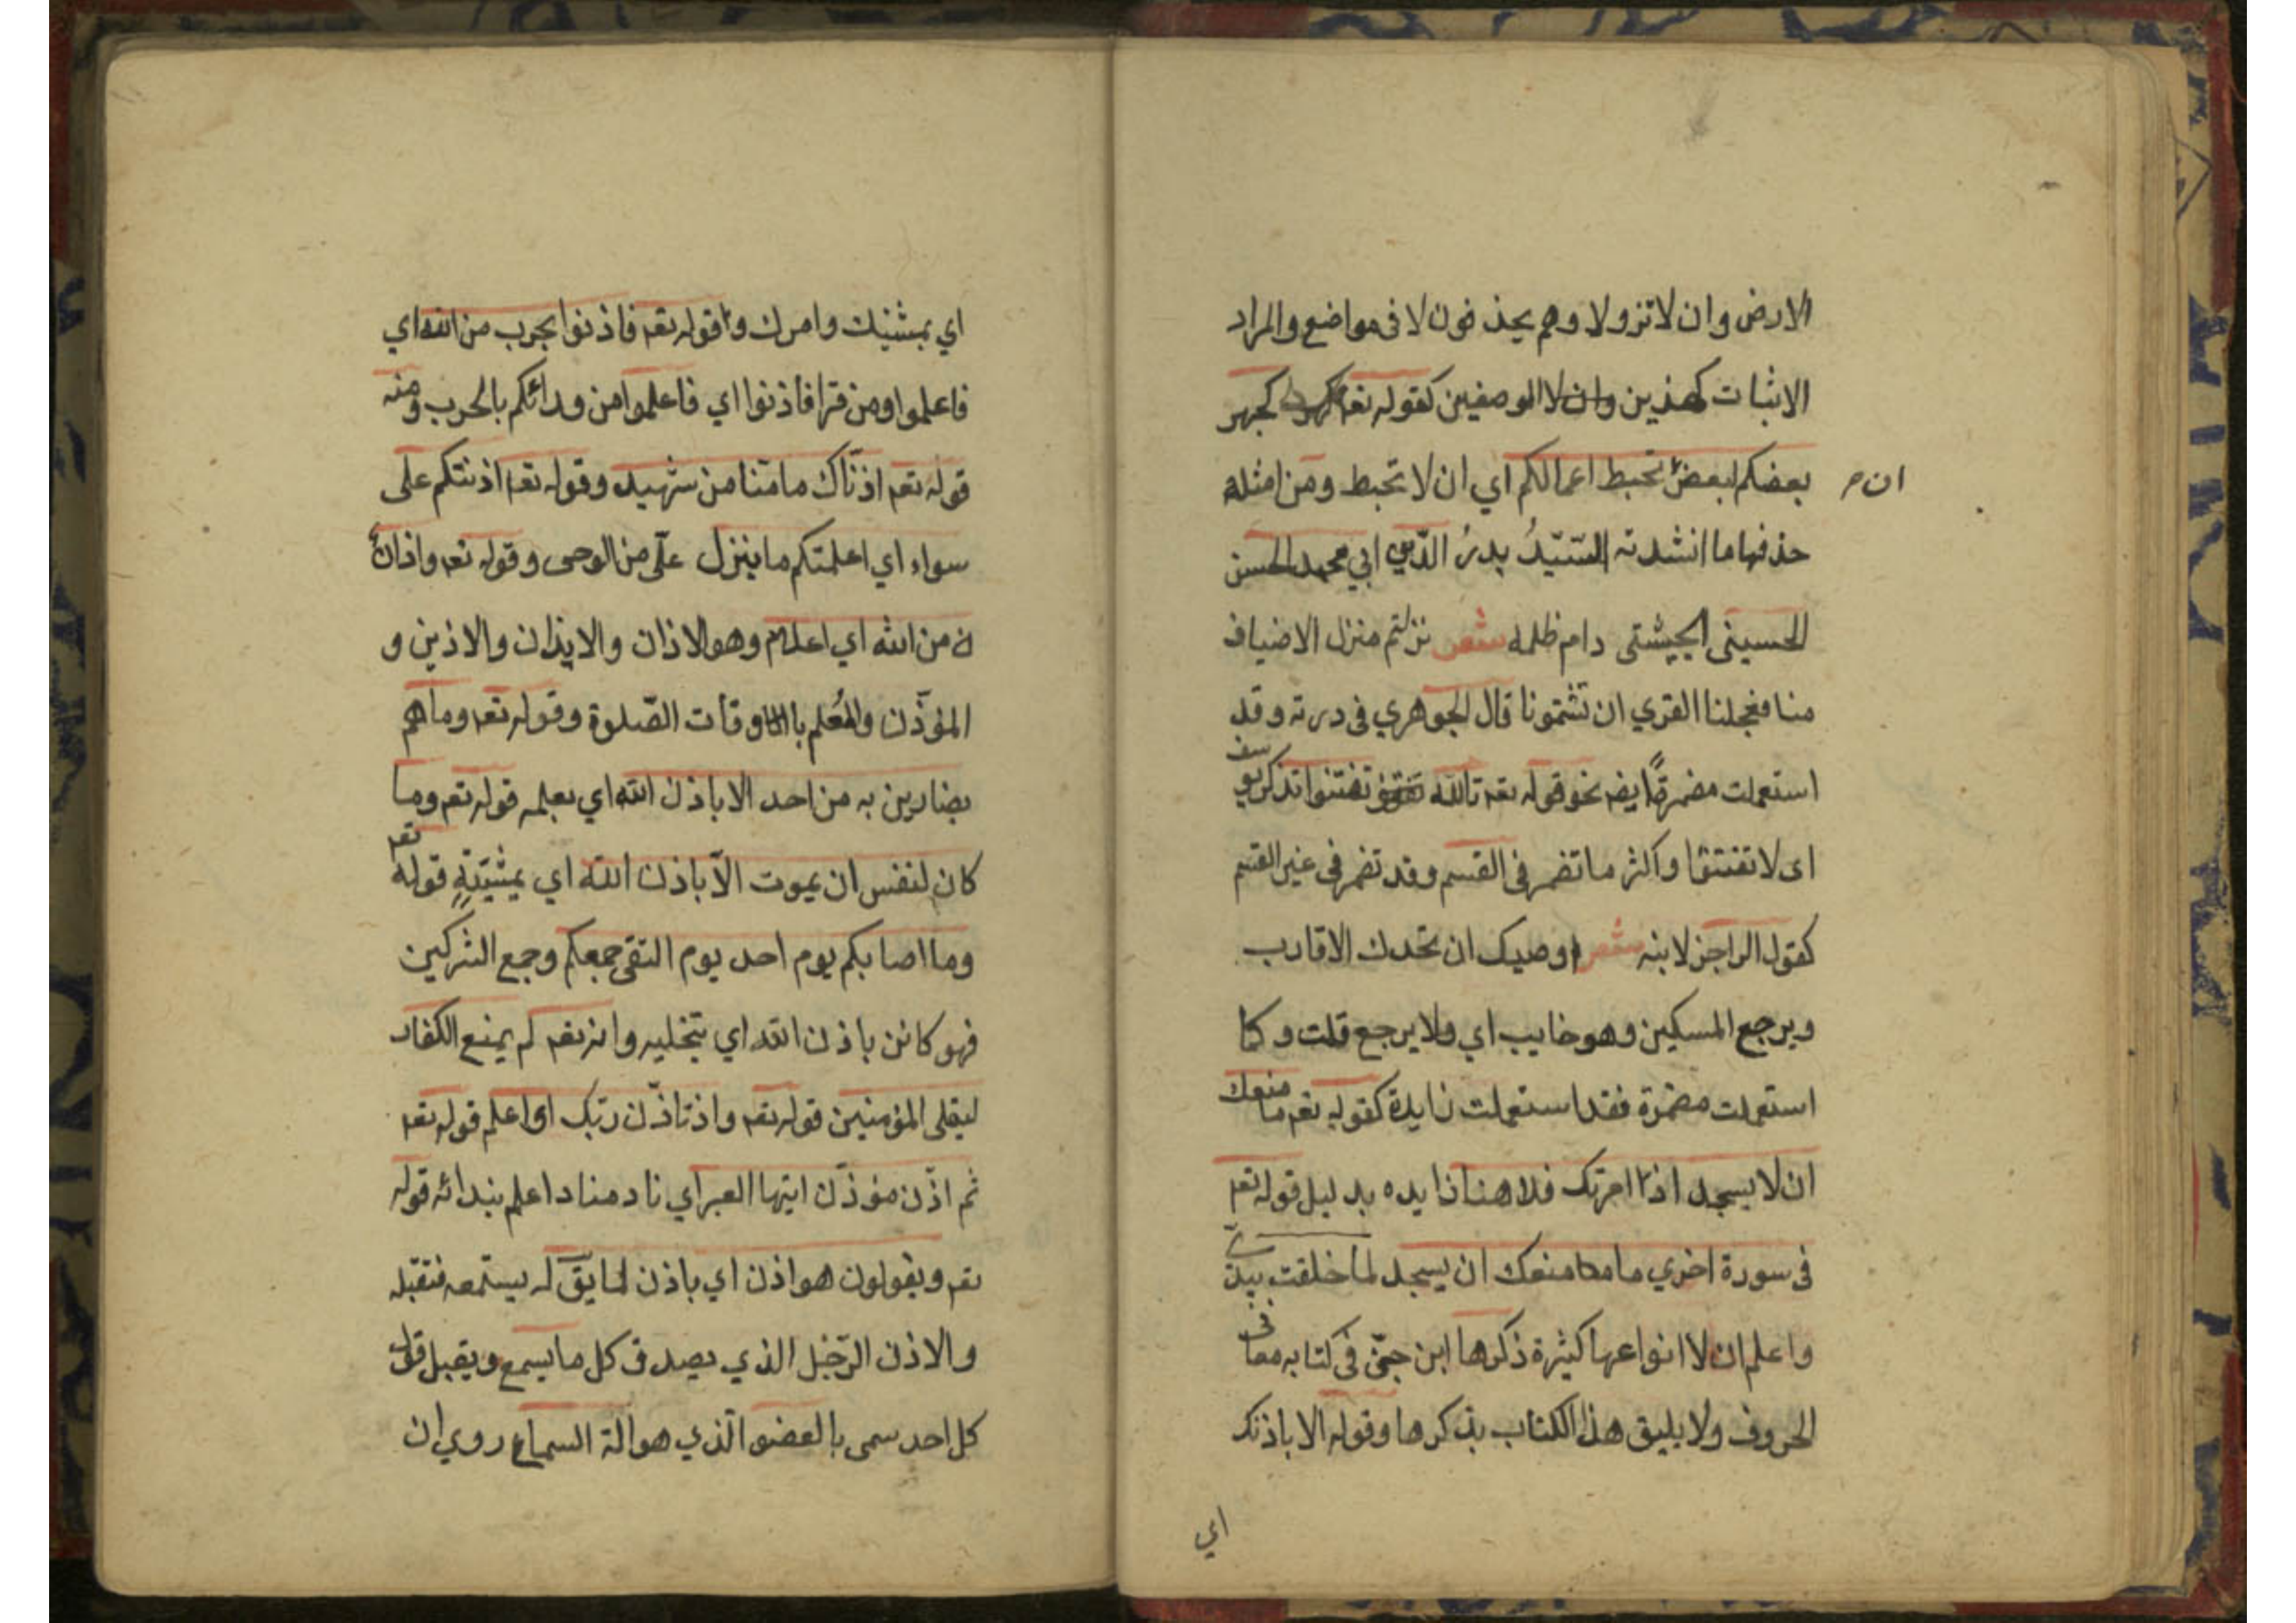 الارض وان لا تزولا وهم يحذفون لا فى مواضع والمراد
الاثبات كهذين الوصفين كقوله تعا كجهر
بعضكم لبعض تحبط اعمالكم اي ان لا تحبط ومن امثلة
ان م
حذفها ما انشدنه السّيّدُ بدرُ الدّين ابي محمد الحسن
الحسينى الچيشتى دام ظلمه شعر نزلتم منزل الاضياف
منا فعجلنا القري ان تشتمونا قال الجوهري فى درته وقد
استعملت مضمرةً ايضہ نحو قوله تعہ تالله تفتؤا تذكر يوسف
اى لا تفتؤا واكثر ما تضمر فى القسم وقد تضمر فى غير القسم
كقول الراجز لابنه شعر اوصيك ان تحدك الاقارب
ويرجع المسكين وهو خايب اي ولا يرجع قلت وكما
استعملت مضمرة فقد استعملت زايدة كقوله تعہ ما منعك
ان لا يسجد اذا امرتك فلا هنا زايده بدليل قوله تعہ
فى سورة اخري ما منعك ان يسجد لما خلقت بيدىّ
واعلم ان لا انواعها كثيرة ذكرها ابن جنّى فى كتابه معانى
الحروف ولا يليق هذا الكتاب بذكرها وقوله الا باذنك
اي
اي بمشيتك وامرك واقوله تعہ فاذنوا بحرب من الله اي
فاعلموا ومن قرا فاذنوا اي فاعلموا من ورائكم بالحرب ومنه
قوله تعہ اذنّاك ما منّا من شهيد وقوله تعہ اذنتكم على
سواء اي اعلمتكم ما ينزل علّى من الوحى وقوله تعہ واذان
من الله اي اعلام وهو الاذان والايذان والاذين و
المؤذّن والمُعلم باوقات الصّلوة وقوله تعہ وما هم
بضارين به من احد الا باذن الله اي بعلمه قوله تعہ وما
كان لنفس ان يموت الّا باذن الله اي بمشيّتهٍ قوله تعہ
وما اصابكم يوم احد يوم التقى جمعكم وجمع الشركين
فهو كائن باذن الله اي بتخليه وانه تعہ لم يمنع الكفار
ليقلى المؤمنين قوله تعہ واذ تاذّن ربّك اى اعلم قوله تعہ
ثم اذّن مؤذّن ايتها العير اي نادا مناد اعلم بندائه قوله
تعہ ويقولون هو اذن اي ياذن لما يقّ له يستمعه فتقبّله
والاذن الرّجل الذي يصدق كل ما يسمع ويقبل قول
كل احد سمى بالعضو الّذي هو الة السماع روي ان